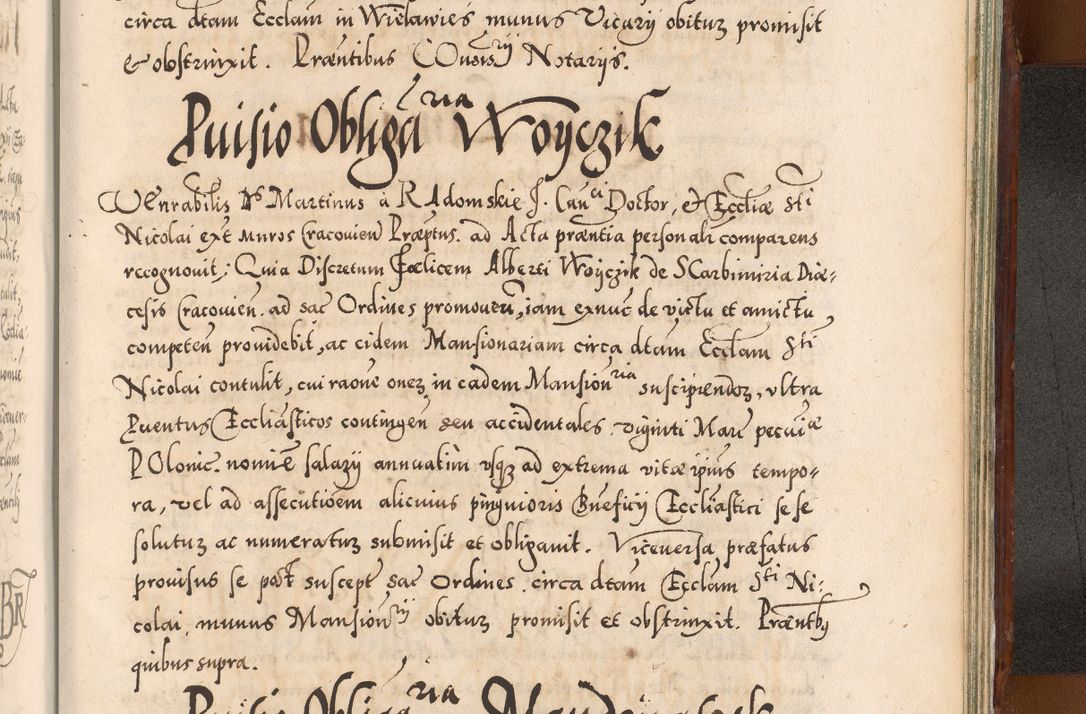 circa dtam Ecclam in Wielawies munus Vicarij obituz promisit
& obstrinxit. Præntibus Consisrij Notarijs.
Puisio Obligaria Woyczik
WEnrabilis Ds Martinus à RAdomskie J. Canci Doctor, & Eccliæ Sti
Nicolai ext muros Cracovien Præptus. ad Acta præntia personalr comparens
recognovit; Quia Discretum Foelicem Alberti Woyczik de SCarbimiria Diæ-
cesis Cracovien. ad sac Ordines promoveri, iam exnuc de victu et amictu
competen providebit, ac eidem Mansionariam circa dtam Ecclam Sti
Nicolai contulit, cui raone onez in eadem Mansionria suscipiendoz, ultra
Pventus Ecclesiasticos contingen seu accidentales viginti Marc pecuiæ
POlonic. nomie salarij annuatim usqz ad extrema vitæ ipius tempo-
ra, vel ad assecutioem alicuius pinguioris Bneficij Ecclesiastici se se
solutuz ac numeratuz submisit et obligavit. Viceversa præfatus
provisus se post suscept sac Ordines, circa dtam Ecclam Sti Ni-
colai, munus Mansionrij obituz promisit et obstrinxit. Præntbq
quibus supra.
Puisio Obligaria